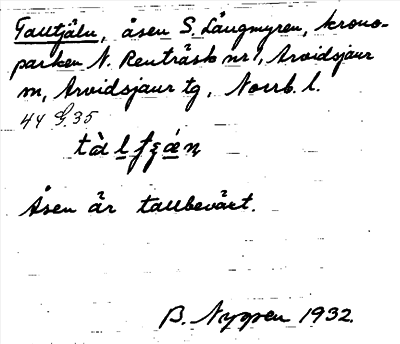 Talltjäln, åsen S. Långmyren, krono-
parken N. Renträsk nr 1, Arvidsjaur
sn, Arvidsjaur tg, Norrb. l.
44 G. 35
Åsen är tallbeväxt.
B. Nygren 1932.